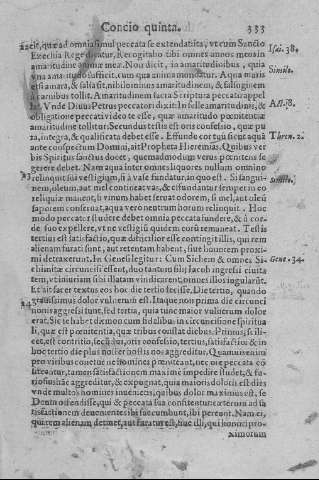 Concio quinta. 333
tacit, quæ ad omnia simul peccata se extendat ita, vt cum Sancto
Ezechia Rege dicatur, Recogitabo tibi omnes annos meos in Isai. 38.
amaritudine animæ meæ. Non dicit, in amaritudinibus, quia
vna amaritudo sufficit, cum qua anima mundatur. Aqua maris Simile.
est amara, & salsa sit, nihilominus amaritudinem, & salsuginem
à carnibus tollit. Amaritudinem sacra Scriptura peccatum appel
lat. Vnde Diuus Petrus peccatori dixit: In felle amaritudinis, & Act. 18.
obligatione peccati video te esse, quæ amaritudo pœnitentiæ
amaritudine tollitur. Secundus testis est oris confessio, quæ pu
ra, integra, & qualificata debet esse. Effundo cor tuum sicut aquā
ante conspectum Domini, ait Propheta Hieremias. Quibus ver
bis Spiritus sanctus docet, quemadmodum verus pœnitens se
gerere debet. Nam aqua inter omnes liquores nullum omnino
relinquit sui vestigium, si à vase fundatur in quo est. Si sangui-
nem, oleum, aut mel contineat vas, & effundantur semper in eo Simile.
reliquiæ manent, si vinum habet seruat odorem, si mel, aut oleū
saporem conseruat, aqua vero neutrum horum relinquit. Hoc
modo peccator studere debet omnia peccata fundere, & à cor-
de suo expellere, vt ne vestigiū quidem eorū remaneat. Testis
tertius est satisfactio, quæ difficilior est contingit illis, qui rem
alienam furati sunt, aut retentam habent, siue honorem proxi-
mi detraxerunt. In Genesi legitur: Cum Sichem & omnes Si- Gene. 34.
chimitæ circuncisi essent, duo tantum filij Iacob ingressi ciuita
tem, vt iniuriam sibi illatam vindicarent, omnes illos iugularūt.
Et ait sacer textus eos hoc die tertio fecisse. Die tertio, quando
grauissimus dolor vulnerum est. Itaque non prima die circunci
sionis aggressi sunt, sed tertia, quia tunc maior vulnerum dolor
erat. Sic se habet dæmon cum fidelibus in circuncisione spiritua
li, quæ est pœnitentia, quæ tribus
cet, est contritio, secūdus, oris confessio, tertius, satisfactio: & in
hoc tertio die plus nos ferior is nos aggreditur. Quamuis enim
pro viribus conetur ne homines pœniteant, nec sua peccata cō
fiteantur, tamen satisfactionem maxime impedire studet, & fu
riosius hāc aggreditur, & expugnat, quia maioris doloris est dies
vnde multos homines inueniens, quibus dolor maximus est, se
Deum offendisse, qui & peccata sua confitentur: at tertium ad sa
tisfactionem deuenientes ibi succumbunt, ibi pereunt. Nam ei,
qui rem alienam detinet, aut furatus est, siue illi, qui honori pro-
ximorum